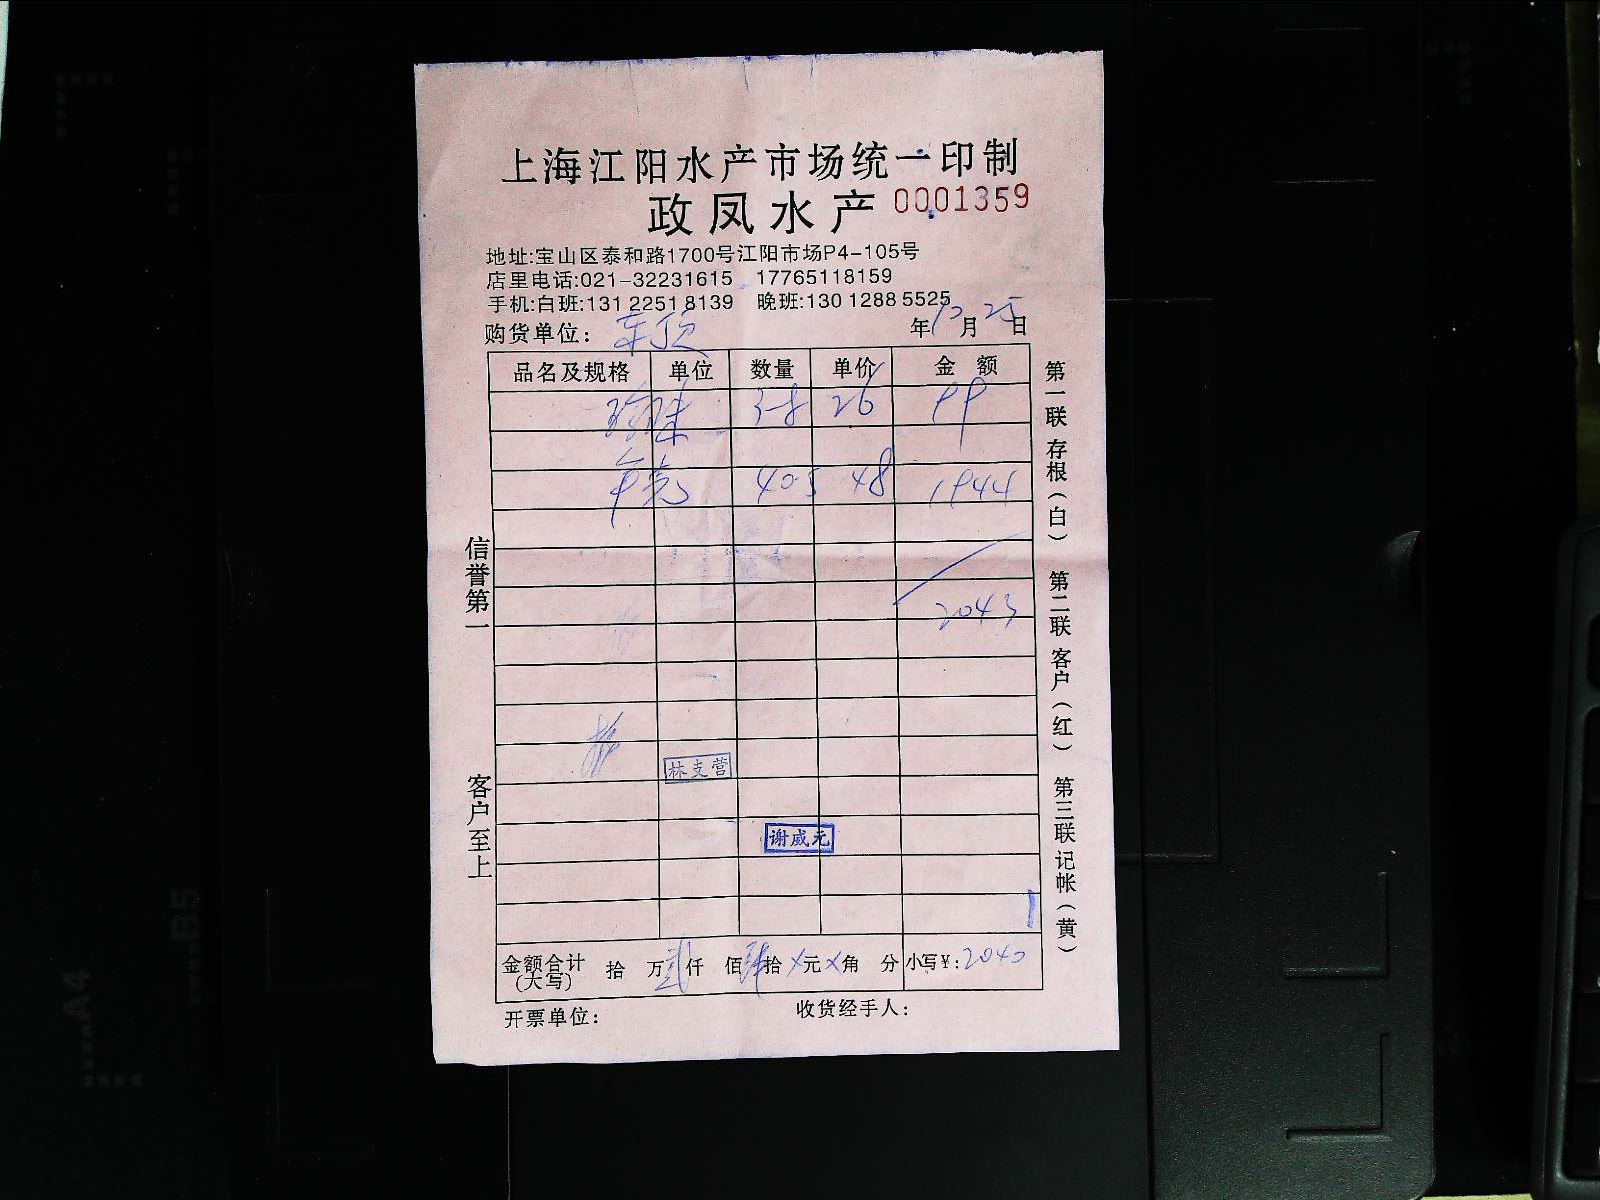 上海江阳水产市场统一印制
政凤水产 0001359
地址:宝山区泰和路1700号江阳市场P4-105号
店里电话:021-32231615 17765118159
手机:白班:131 2251 8139 晚班:130 1288 5525
购货单位: 年12月25日
品名及规格 单位 数量 单价 金额
珍珠 3.8 26 99
40.5 48 1944
2043
林支营
谢威元
金额合计(大写) 拾 万贰仟 佰肆拾×元×角 分 小写¥:2040
开票单位: 收货经手人:
信誉第一
客户至上
第一联 存根(白)
第二联 客户(红)
第三联 记帐(黄)